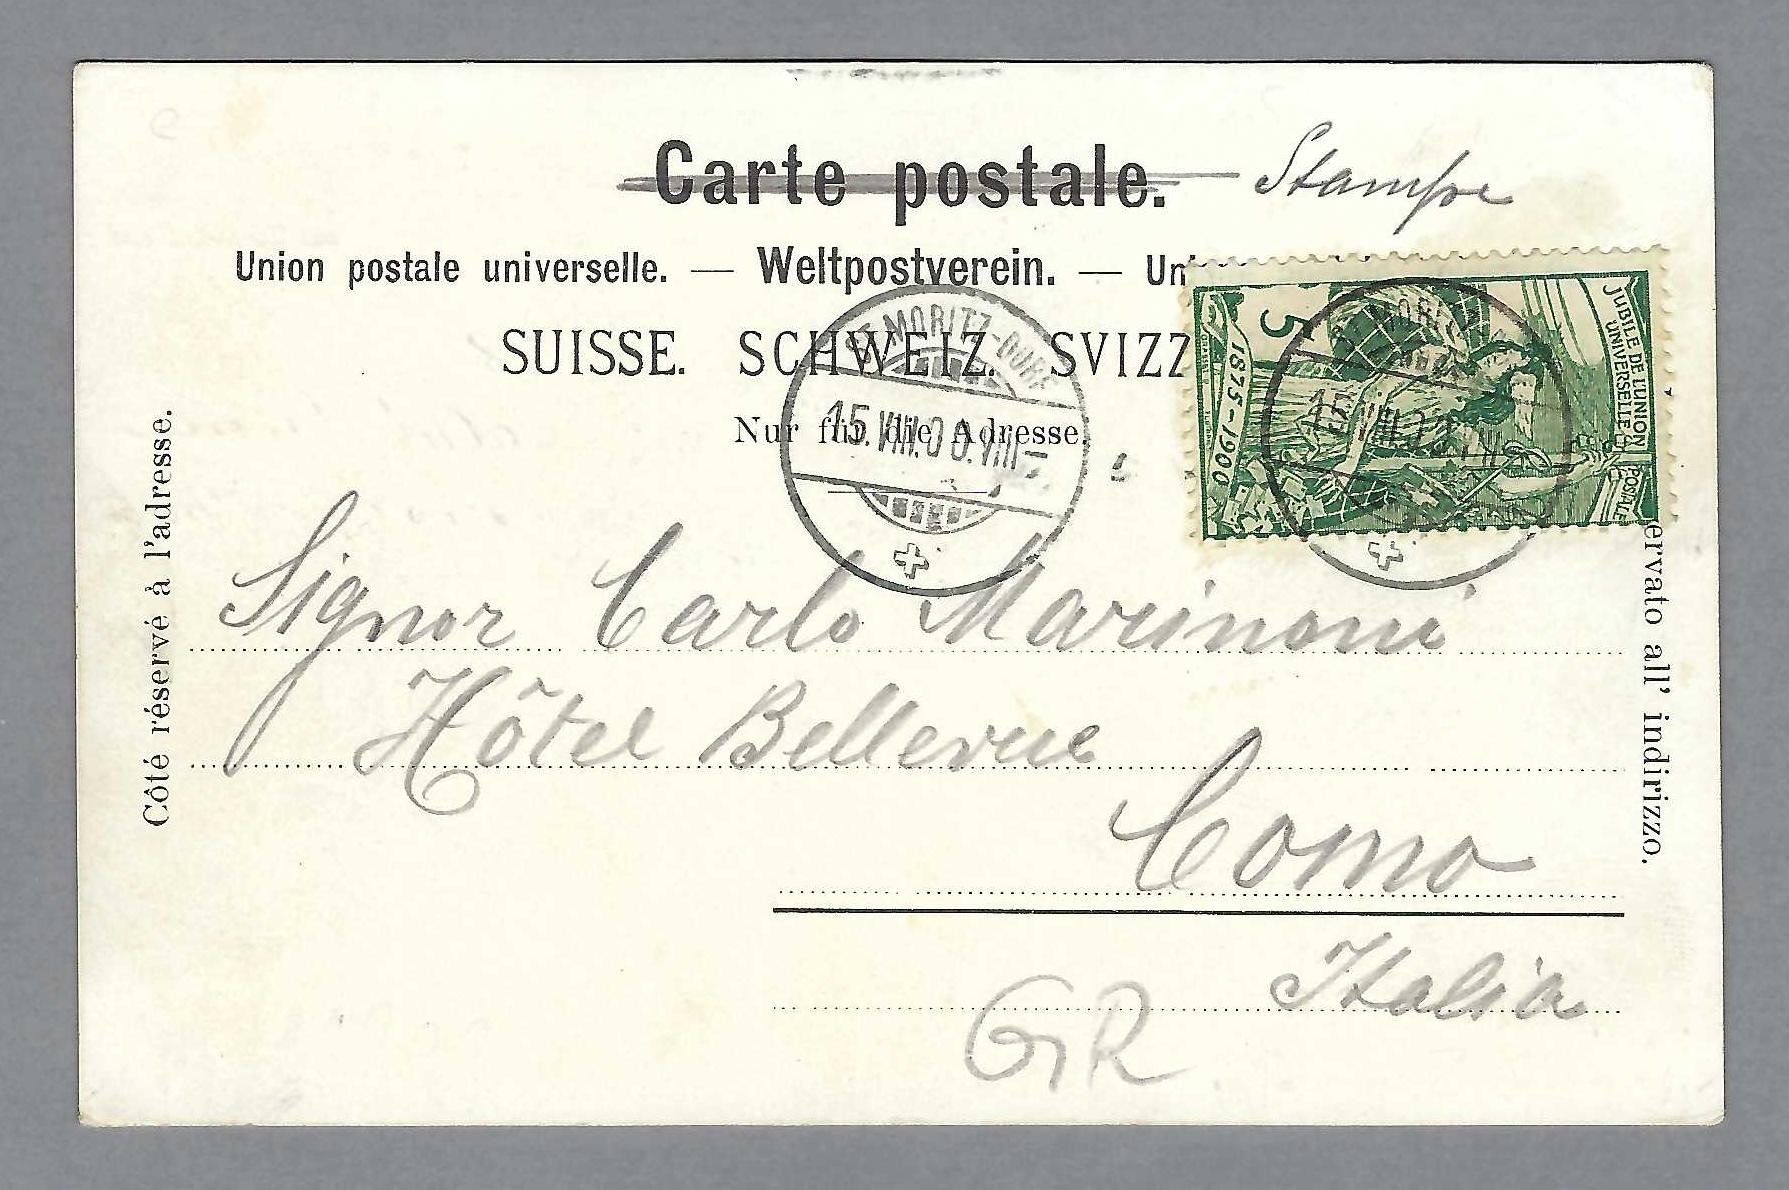 Carte postale. Stampe
Union postale universelle. — Weltpostverein. — Un
SUISSE. SCHWEIZ. SVIZZ
Nur für die Adresse.
Côté réservé à l'adresse.
ervato all' indirizzo.
ST. MORITZ-DORF
15.VIII.00.VIII-
5
1875-1900
JUBILÉ DE L'UNION
UNIVERSELLE
POSTALE
ST. MORITZ
15.VIII.0
Signor Carlo Marinoni
Hôtel Bellevue
Como
Italia
GR